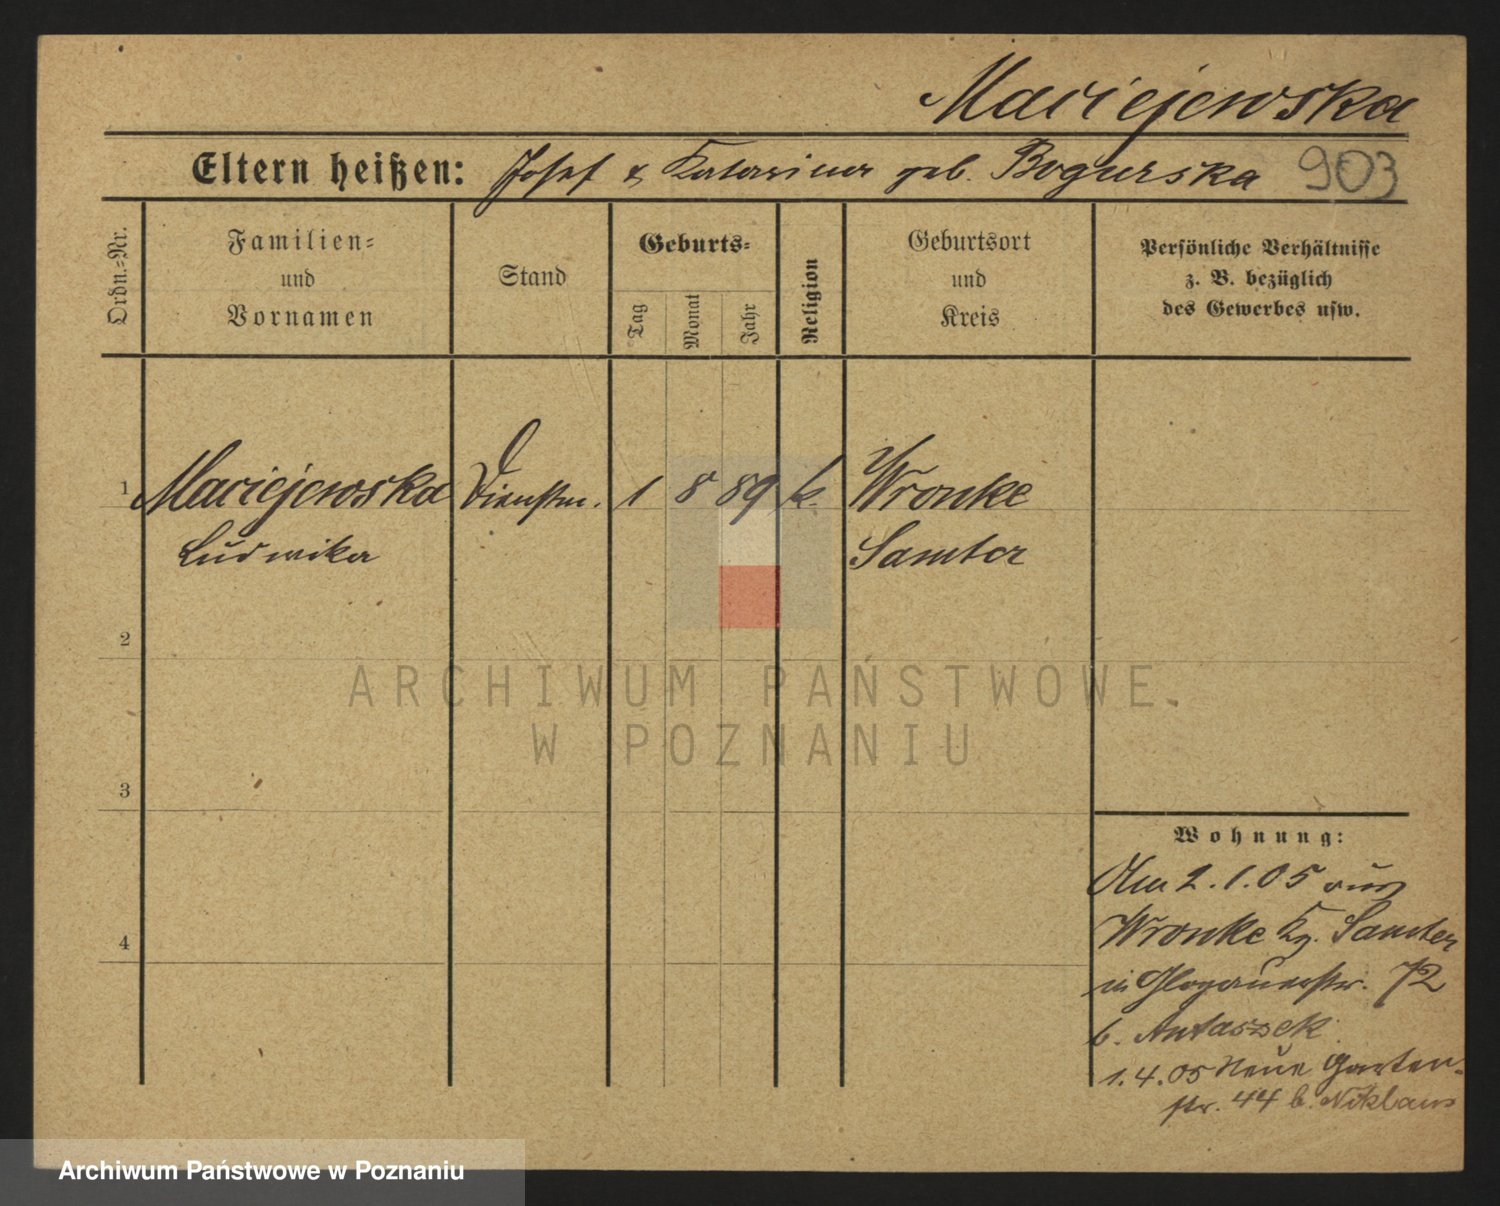 Maciejewska
Eltern heißen: Josef & Katarina geb. Bogurska 903
Ordn.-Nr.
Familien-
und
Vornamen
Stand
Geburts-
Tag
Monat
Jahr
Religion
Geburtsort
und
Kreis
Persönliche Verhältnisse
z. B. bezüglich
des Gewerbes usw.
1 Maciejewska Dienstm. 1 8 89 k. Wronke
Ludwika Samter
2
ARCHIWUM PAŃSTWOWE
W POZNANIU
3
Wohnung:
Am 2.1.05 aus
Wronke Kr. Samter
in Glogauerstr. 72
b. Antaszek
1.4.05 Neue Garten-
str. 44 b. Niklaus
4
Archiwum Państwowe w Poznaniu